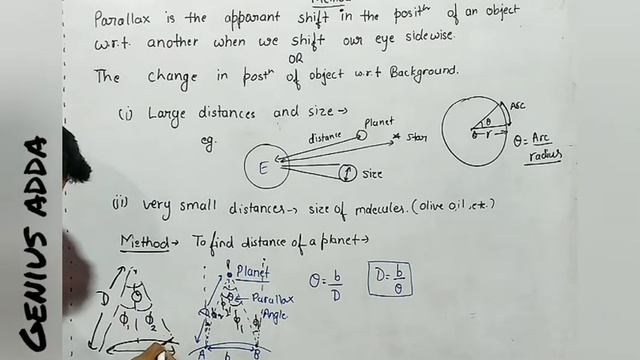 Method
Parallax is the apparant shift in the posith of an object
w.r.t. another when we shift our eye sidewise.
OR
The change in posth of object w.r.t Background.
(i) Large distances and size→
eg.
E
distance
Planet
Star
Size
Arc
θ
r
θ = Arc
radius
(ii) very small distances→ size of molecules. (olive oil, etc.)
Method→ To find distance of a planet→
D
θ
ϕ1
ϕ2
P
Planet
θ
Parallax
Angle
D
ϕ1
ϕ2
A
b
B
θ = b
D
D = b
θ
GENIUS ADDA